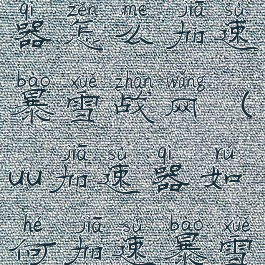 qì zěn me jiā sù
器怎么加速
bào xuě zhàn wǎng
暴雪战网（
jiā sù qì rú
uu加速器如
hé jiā sù bào xuě
何加速暴雪